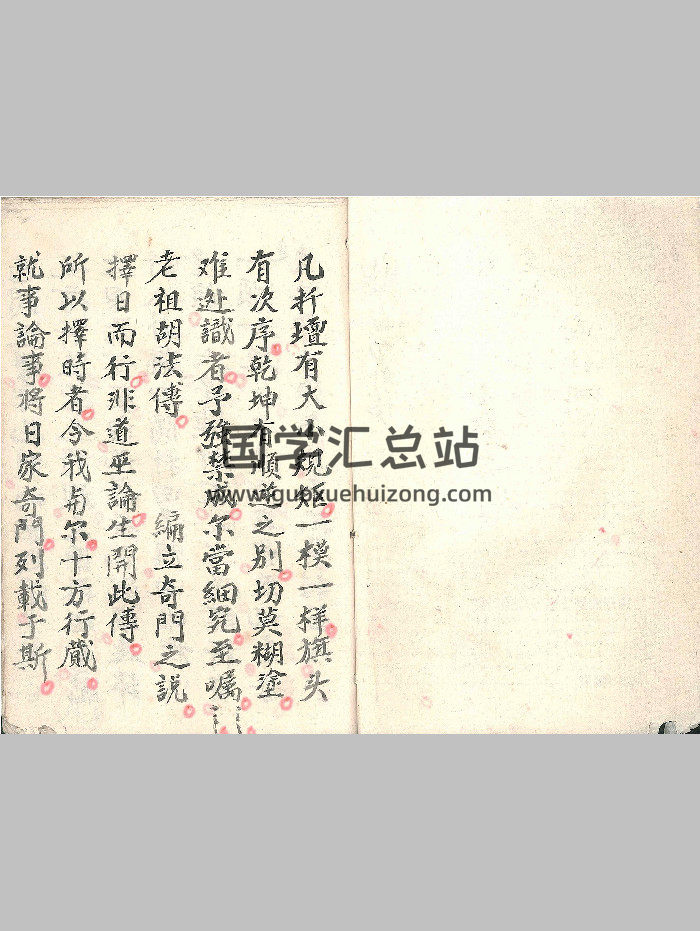 凡折壇有大小規矩一模一样旗头
有次序乾坤有順逆之别切莫糊塗
难処識者予強禁戒尔當細究至嘱
老祖胡法傳 編立奇門之說
擇日而行非道巫論生開此傳
所以擇時者今我与尔十方行藏
就事論事将日家奇門列載于斯
国学汇总站
www.guoxuehuizong.com